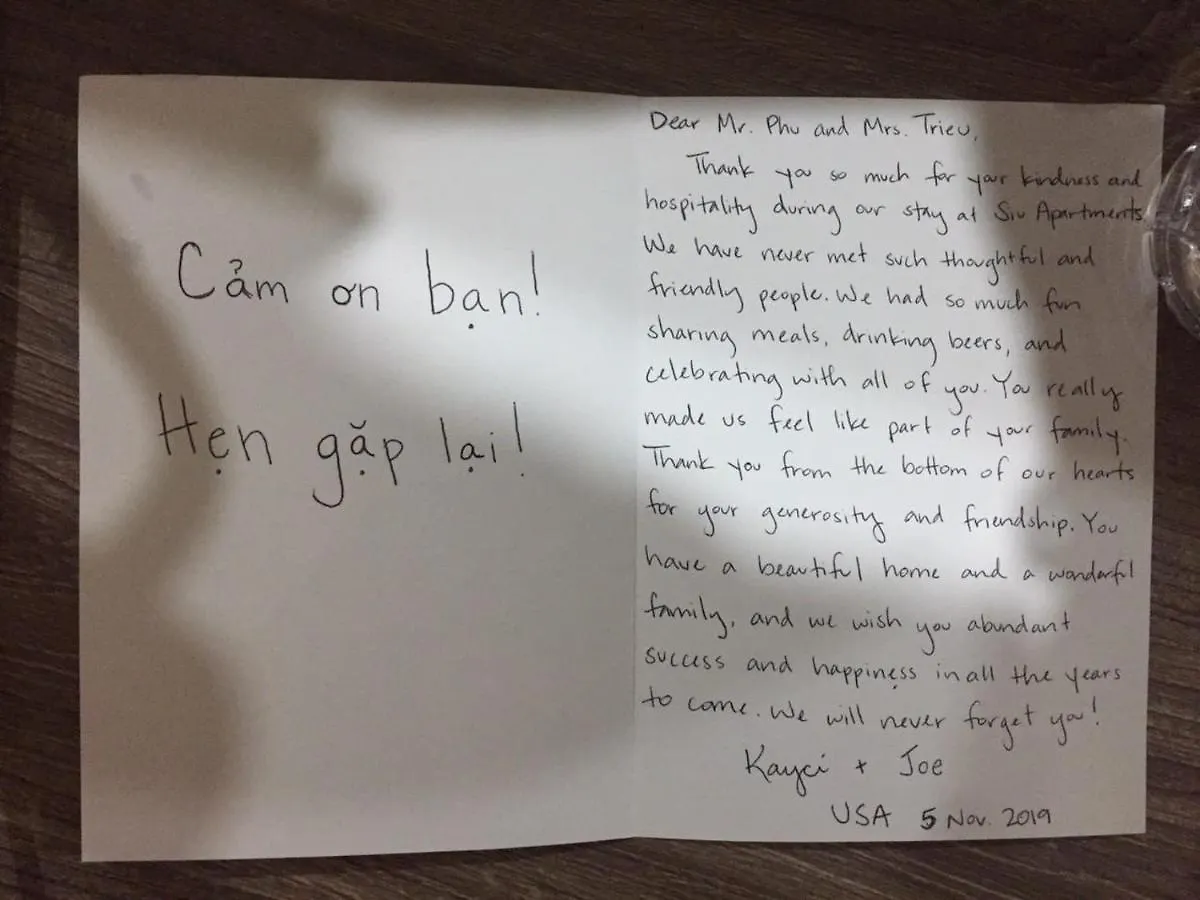 Cảm ơn bạn!
Hẹn gặp lại!
Dear Mr. Phu and Mrs. Trieu,
Thank you so much for your kindness and
hospitality during our stay at Siu Apartments.
We have never met such thoughtful and
friendly people. We had so much fun
sharing meals, drinking beers, and
celebrating with all of you. You really
made us feel like part of your family.
Thank you from the bottom of our hearts
for your generosity and friendship. You
have a beautiful home and a wonderful
family, and we wish you abundant
success and happiness in all the years
to come. We will never forget you!
Kayci + Joe
USA 5 Nov. 2019